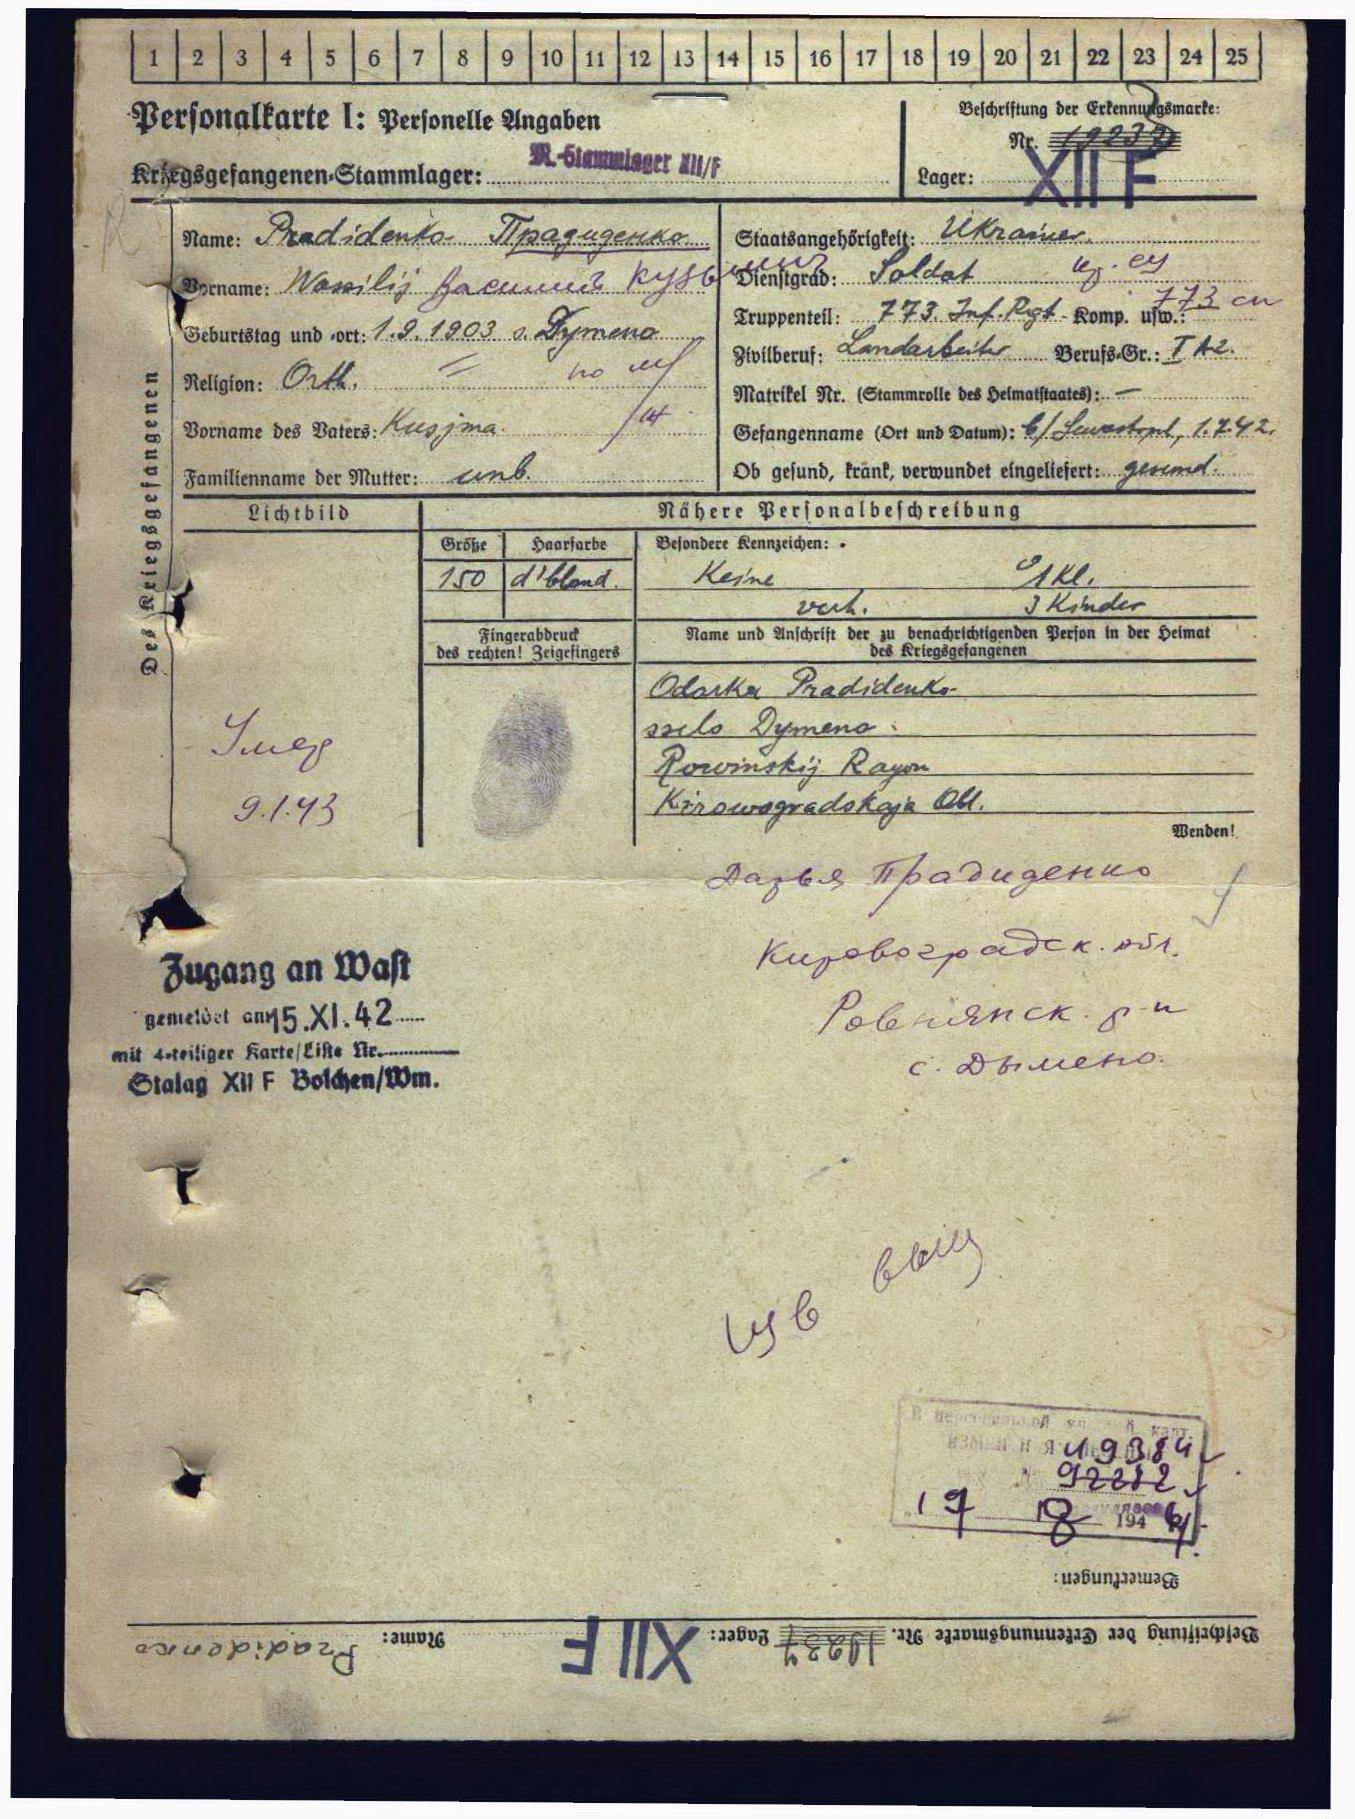 1 2 3 4 5 6 7 8 9 10 11 12 13 14 15 16 17 18 19 20 21 22 23 24 25
Personalkarte I: Personelle Angaben
Beschriftung der Erkennungsmarke:
Nr. 19237
Kriegsgefangenen-Stammlager: M.-Stammlager XII/F
Lager: XII F
Des Kriegsgefangenen
Name: Pradidenko Прадиденко
Vorname: Wassilij Василий Кузьмич
Geburtstag und -ort: 1.9.1903 s. Dymeno
Religion: Orth.
Vorname des Vaters: Kusjma.
Familienname der Mutter: unb.
Staatsangehörigkeit: Ukrainer.
Dienstgrad: Soldat
Truppenteil: 773. Inf. Rgt. Komp. usw.: 773 сп
Zivilberuf: Landarbeiter Berufs-Gr.: I A2.
Matrikel Nr. (Stammrolle des Heimatstaates): —
Gefangenname (Ort und Datum): b/Sewastopl, 1.7.42.
Ob gesund, krank, verwundet eingeliefert: gesund.
Lichtbild
Nähere Personalbeschreibung
Größe Haarfarbe Besondere Kennzeichen:
150 d'blond. Keine 1 Kl.
verh. 3 Kinder
Fingerabdruck
des rechten! Zeigefingers
Name und Anschrift der zu benachrichtigenden Person in der Heimat
des Kriegsgefangenen
Odarka Pradidenko
sselo Dymeno
Rowinskij Rayon
Kirowogradskaja Obl.
Wenden!
Умер
9.1.43
Дарья Прадиденко
Кировоградск. обл.
Ровнянск. р-н
с. Дымено.
Zugang an Wast
gemeldet am 15.XI.42
mit 4-teiliger Karte/Liste Nr.
Stalag XII F Bolchen/Wm.
49384
92282
194
Bemerkungen:
Beschriftung der Erkennungsmarke Nr. 19237 Lager: XII F Name: Pradidenko